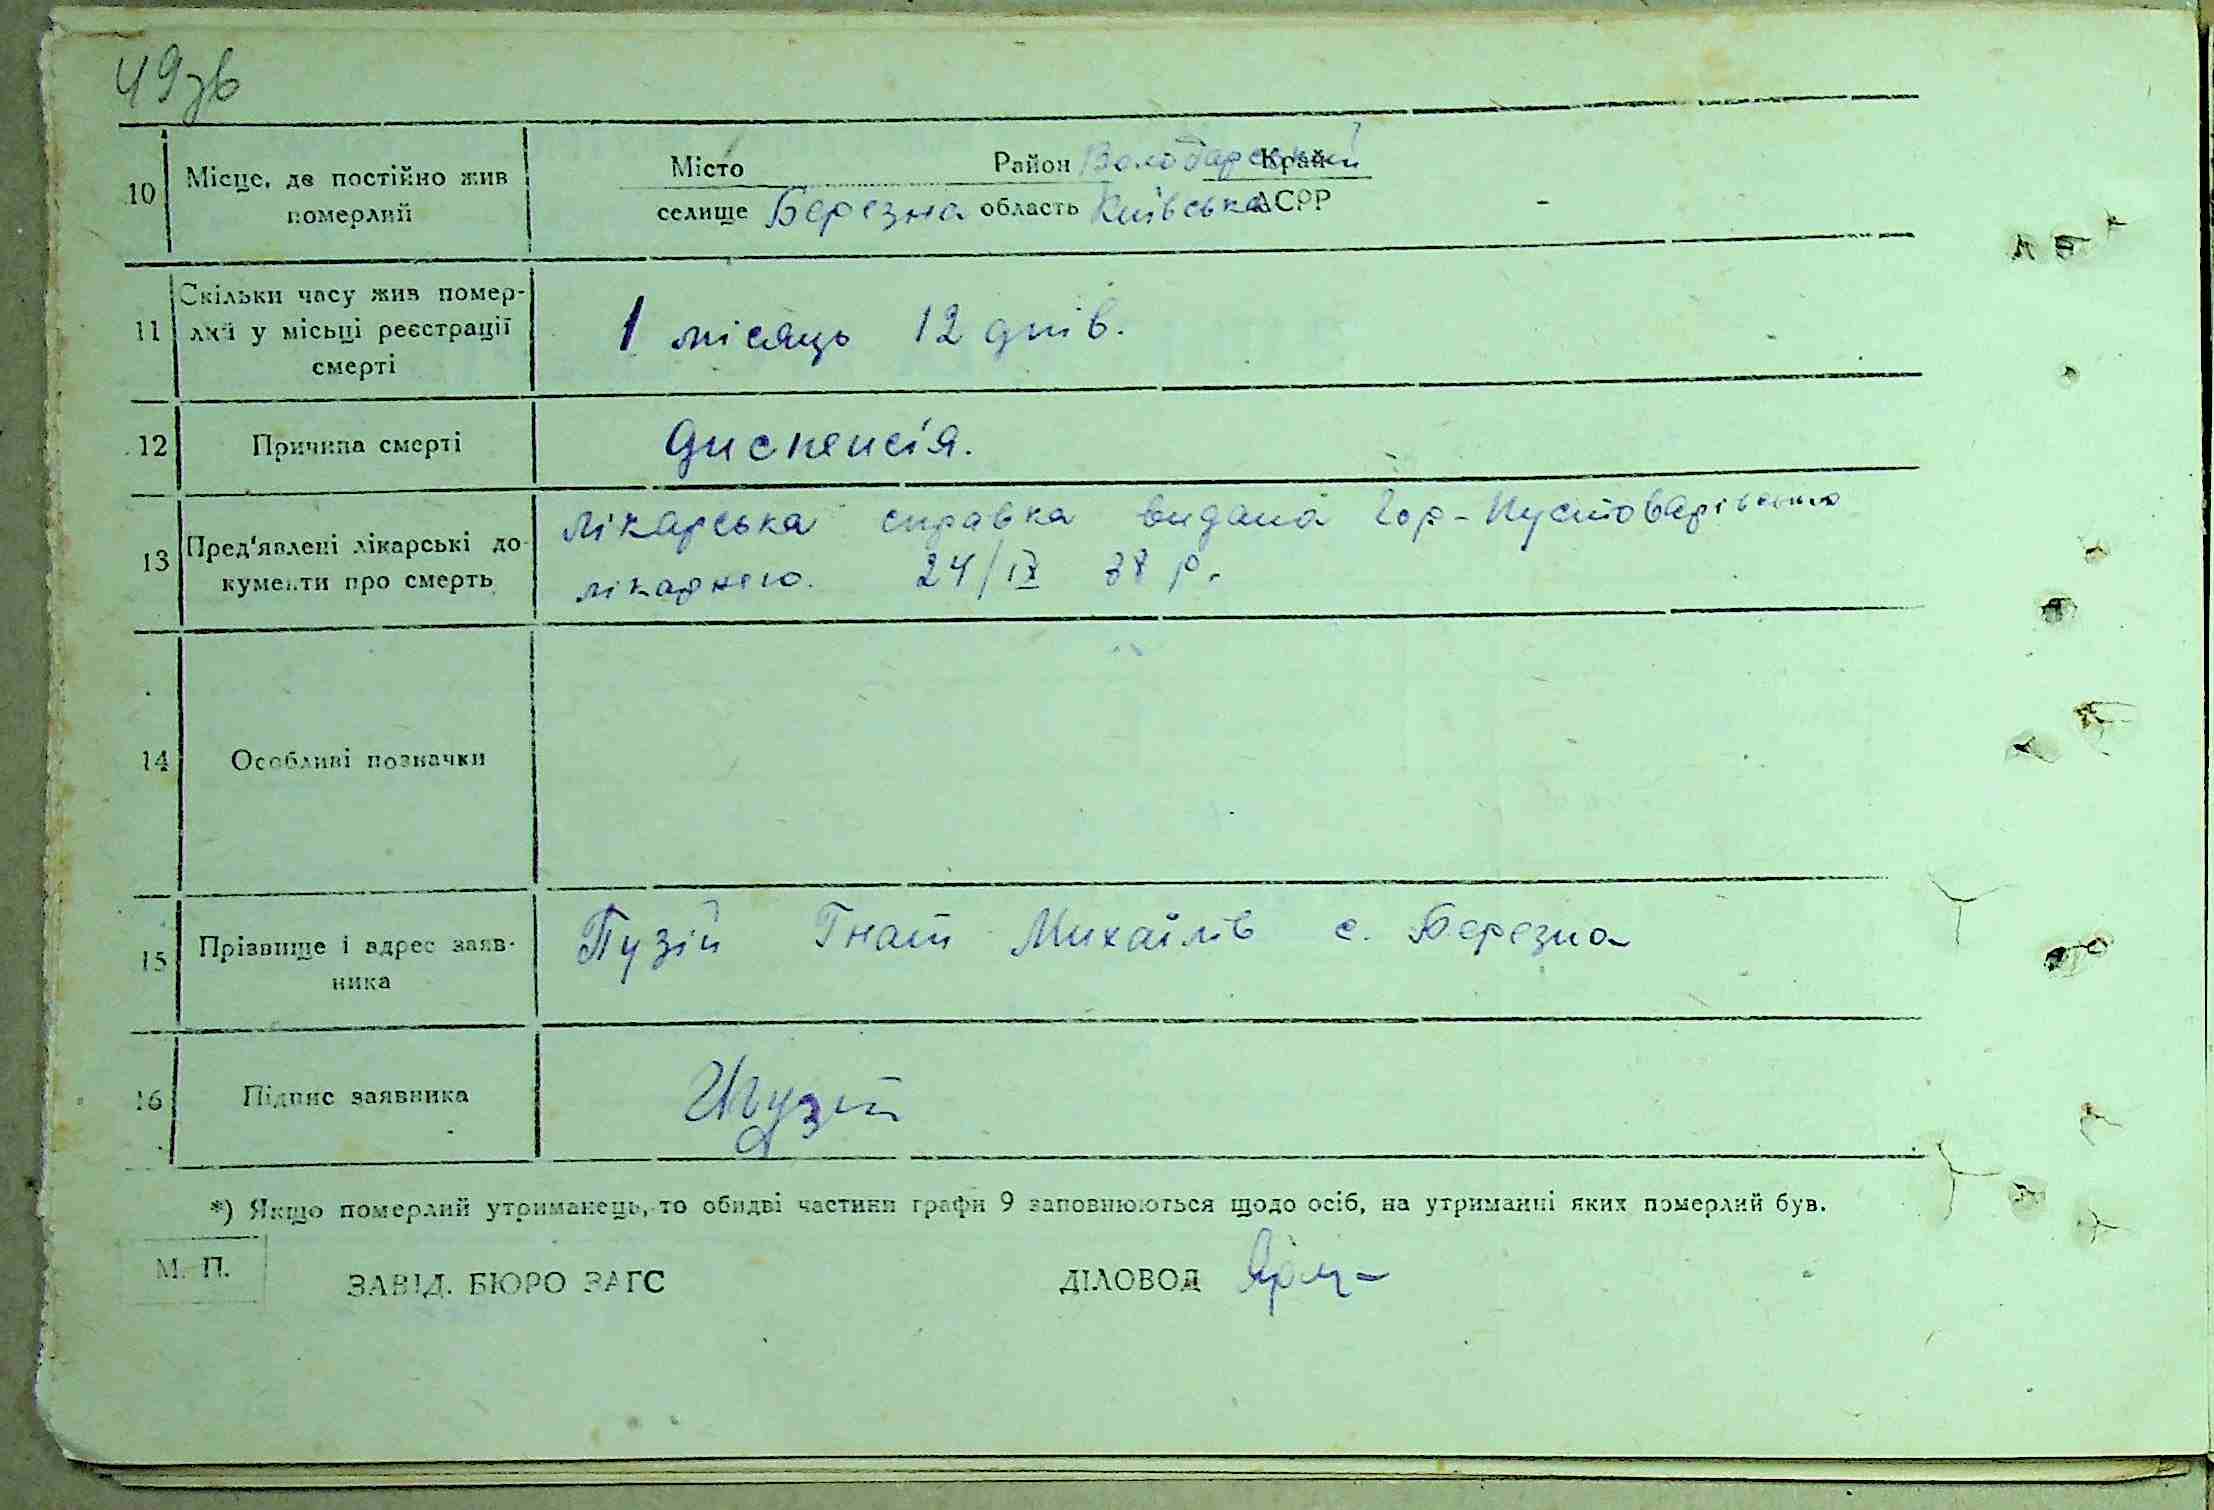 49зв
10 Місце, де постійно жив померлий
Місто Район Володарський Край
селище Березна область Київська АСРР
11 Скільки часу жив померлий у місьці реєстрації смерті
1 місяць 12 днів.
12 Причина смерті
диспепсія.
13 Пред'явлені лікарські документи про смерть
лікарська справка видана Гор-Пустоварівською
лікарнею. 24/IX 38 р.
14 Особливі позначки
15 Прізвище і адрес заявника
Пузій Гнат Михайлів с. Березна
16 Підпис заявника
*) Якщо померлий утриманець, то обидві частини графи 9 заповнюються щодо осіб, на утриманні яких померлий був.
М. П.
ЗАВІД. БЮРО ЗАГС ДІЛОВОД